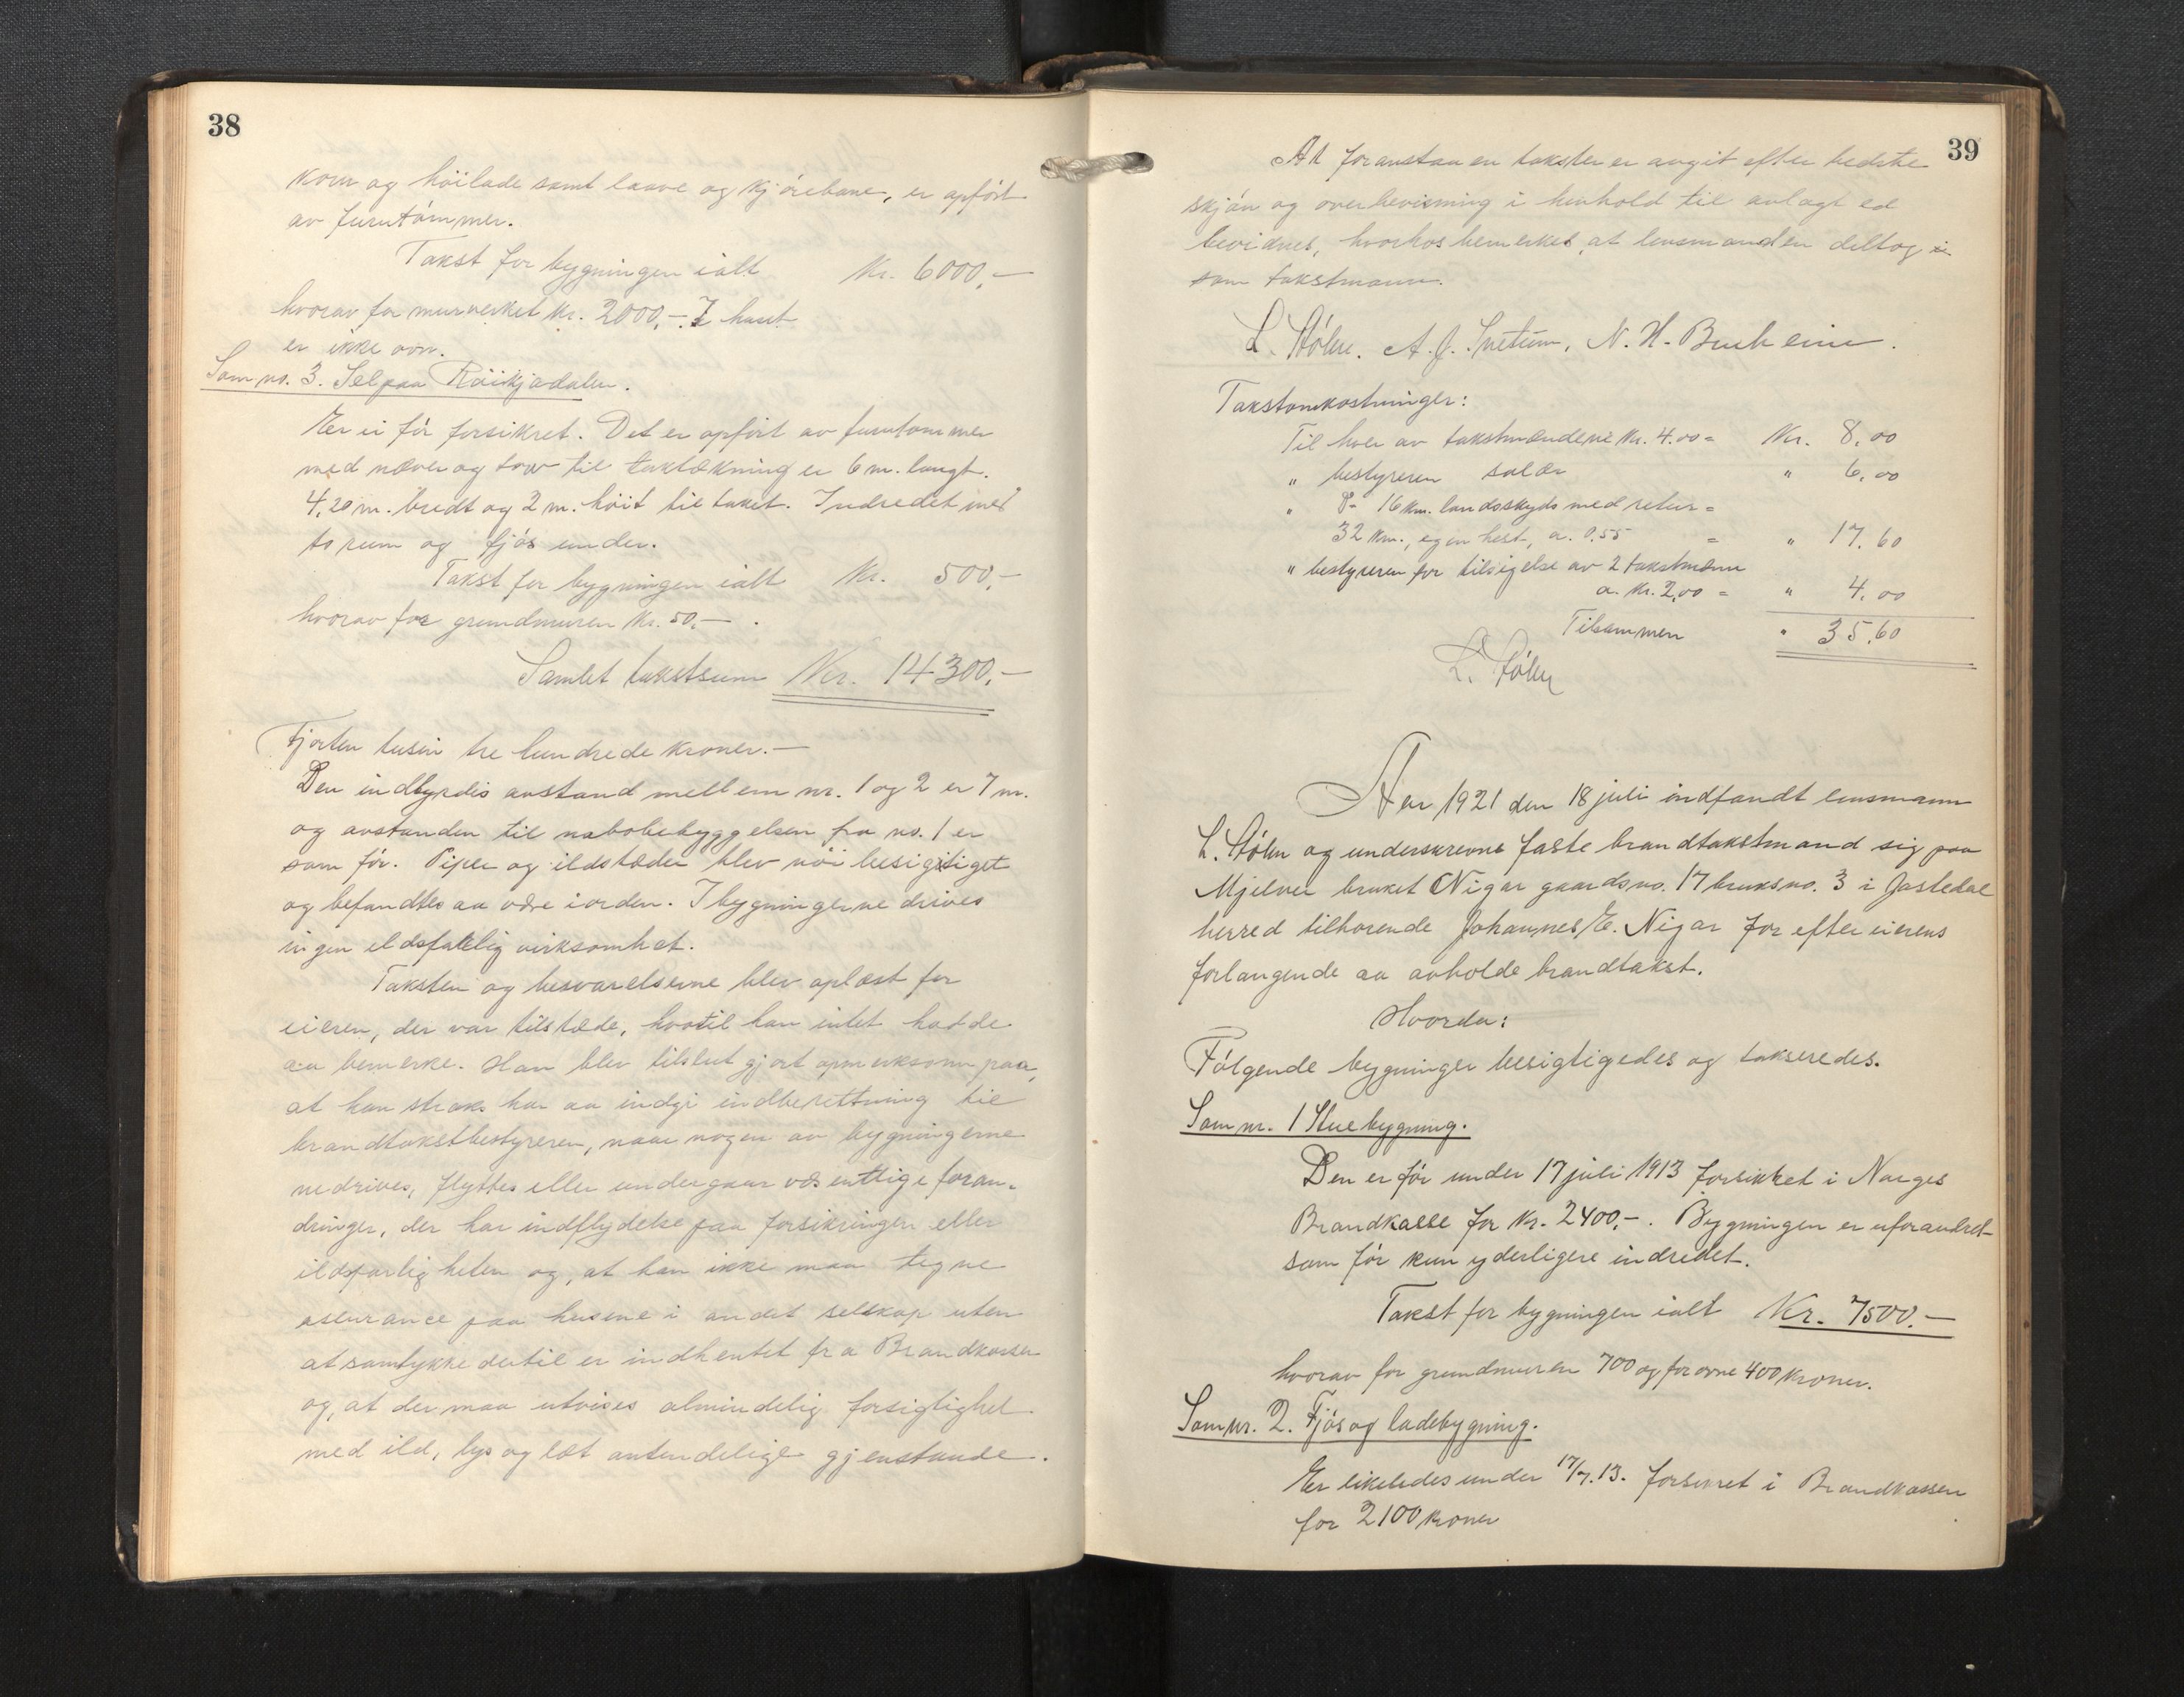 38
korn og höilade samt laave og kjörebane, er opfört
av furutömmer.
Takst for bygningen ialt Kr. 6000,-
hvorav for murverket Kr. 2000,-. I huset
er ikke ovn.
Som no. 3. Sel paa Röikjadalen.
Er ei för forsikret. Det er opfört av furutömmer
med næver og torv til taktækning er 6 m. langt.
4,20 m. bredt og 2 m. höit til taket. Indredet med
to rum og fjös under.
Takst for bygningen ialt Kr. 500,-
hvorav for grundmuren Kr. 50,-.
Samlet takstsum Kr. 14300,-
Fjorten tusin tre hundrede kroner.-
Den indbyrdis avstand mellem nr. 1 og 2 er 7 m.
og avstanden til nabobebyggelsen fra no. 1 er
som för. Piper og ildstæder blev nöi besigtiget
og befandtes aa være iorden. I bygningerne drives
ingen ildsfarlig virksomhet.
Taksten og besvarelserne blev oplæst for
eieren, der var tilstæde, hvortil han intet hadde
aa bemerke. Han blev tilslut gjort opmerksom paa,
at han straks har aa indgi indberettning til
brandtakstbestyreren, naar nogen av bygningerne
nedrives, flyttes eller undergaar væsentlige foran-
dringer, der har indflydelse paa forsikringen eller
ildsfarligheten og, at han ikke maa tegne
assurance paa husene i andet selskap uten
at samtykke dertil er indhentet fra Brandkassen
og, at der maa utvises almindelig forsigtighet
med ild, lys og læt antendelige gjenstande.
39
At foranstaaen takster er avgit efter bedste
skjön og overbevisning i henhold til avlagt ed
bevidnes, hvorhos bemerkes, at lensmanden deltog
som takstmann.
L. Stölen. A. J. Snetun, N. H. Buskein.
Takstomkostninger:
Til hver av takstmændene Kr. 4.00 = Kr. 8,00
" bestyreren salær " 6,00
" Do 16 km. landsskyds med retur =
32 km., egen hest, a. 0.55 = " 17,60
" bestyreren for tilsigelse av 2 takstmænn
a. Kr. 2,00 = " 4,00
Tilsammen " 35,60
L. Stölen
Aar 1921 den 18 juli indfandt lensmann
L. Stölen og underskrevne faste brandtakstmænd sig paa
Mjelver bruket Nigar gaardsno. 17 bruksno. 3 i Jostedal
herred tilhorende Johannes E. Nigar for efter eierens
forlangende aa avholde brandtakst.
Hvorda:
Fölgende bygninger besigtigedes og takseredes.
Som nr. 1 Stuebygning.
Den er för under 17 juli 1913 forsikret i Norges
Brandkasse for Kr. 2400,-. Bygningen er uforandret
som för kun yderligere indredet.
Takst for bygningen ialt Kr. 7500.-
hvorav for grundmuren 700 og for ovne 400 kroner.
Som nr. 2. Fjös og ladebygning.
Er likeledes under 17/7.13. forsikret i Brandkassen
for 2100 kroner